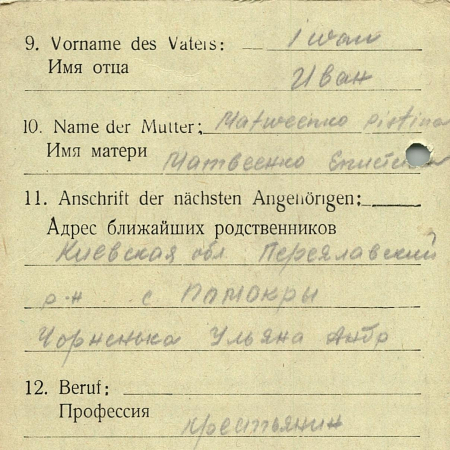 9. Vorname des Vaters: Iwan
Имя отца Иван
10. Name der Mutter: Matweenko
Имя матери Матвеенко
11. Anschrift der nächsten Angehörigen:
Адрес ближайших родственников
Киевская обл Переяславский
р-н с Помокры
Чорненька Ульяна
12. Beruf:
Профессия крестьянин